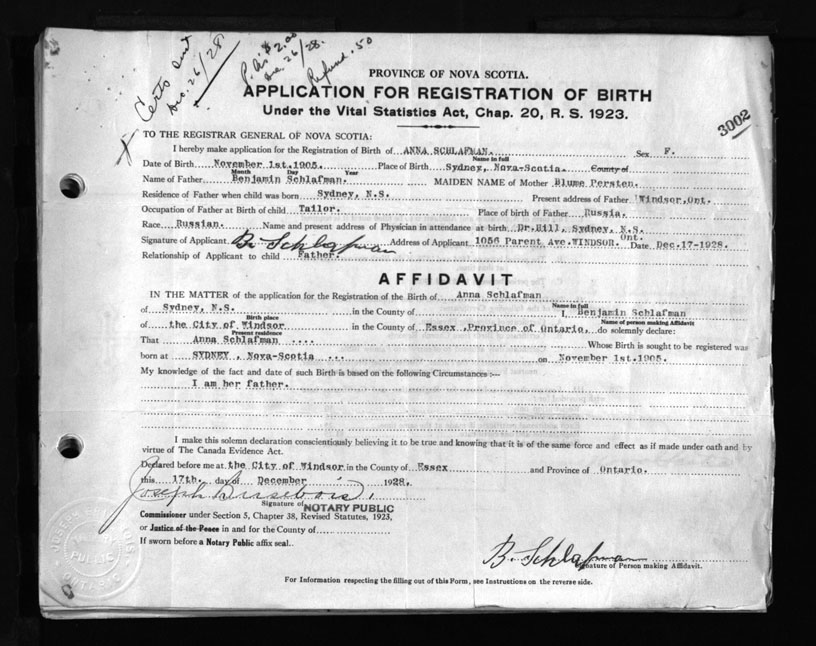 Certs sent
Dec. 26/28
Pd $2.00
Dec. 26/28.
Refund .50
PROVINCE OF NOVA SCOTIA.
APPLICATION FOR REGISTRATION OF BIRTH
Under the Vital Statistics Act, Chap. 20, R. S. 1923.
3002
X
TO THE REGISTRAR GENERAL OF NOVA SCOTIA:
I hereby make application for the Registration of Birth of ANNA SCHLAFMAN. Sex F.
Name in full
Date of Birth November 1st.1905. Place of Birth Sydney, Nova-Scotia. County of
Month Day Year
Name of Father Benjamin Schlafman. MAIDEN NAME of Mother Blume Persten.
Residence of Father when child was born Sydney, N.S. Present address of Father Windsor,Ont.
Occupation of Father at Birth of child Tailor. Place of birth of Father Russia.
Race Russian. Name and present address of Physician in attendance at birth Dr.Hill, Sydney, N.S.
Signature of Applicant B. Schlafman Address of Applicant 1056 Parent Ave.WINDSOR. Ont. Date Dec.17-1928.
Relationship of Applicant to child Father.
AFFIDAVIT
IN THE MATTER of the application for the Registration of the Birth of Anna Schlafman
Name in full
of Sydney, N.S. in the County of I, Benjamin Schlafman
Birth place Name of person making Affidavit
of the City of Windsor in the County of Essex ,Province of Ontario, do solemnly declare:
Present residence
That Anna Schlafman .... Whose Birth is sought to be registered was
born at SYDNEY , Nova-Scotia ... on November 1st.1905.
My knowledge of the fact and date of such Birth is based on the following Circumstances :—
I am her father.
I make this solemn declaration conscientiously believing it to be true and knowing that it is of the same force and effect as if made under oath and by
virtue of The Canada Evidence Act.
Declared before me at the City of Windsor in the County of Essex and Province of Ontario.
this 17th. day of December 1928.
Joseph
Signature of NOTARY PUBLIC
Commissioner under Section 5, Chapter 38, Revised Statutes, 1923,
or Justice of the Peace in and for the County of
If sworn before a Notary Public affix seal..
PUBLIC
B. Schlafman
Signature of Person making Affidavit.
For Information respecting the filling out of this Form, see Instructions on the reverse side.